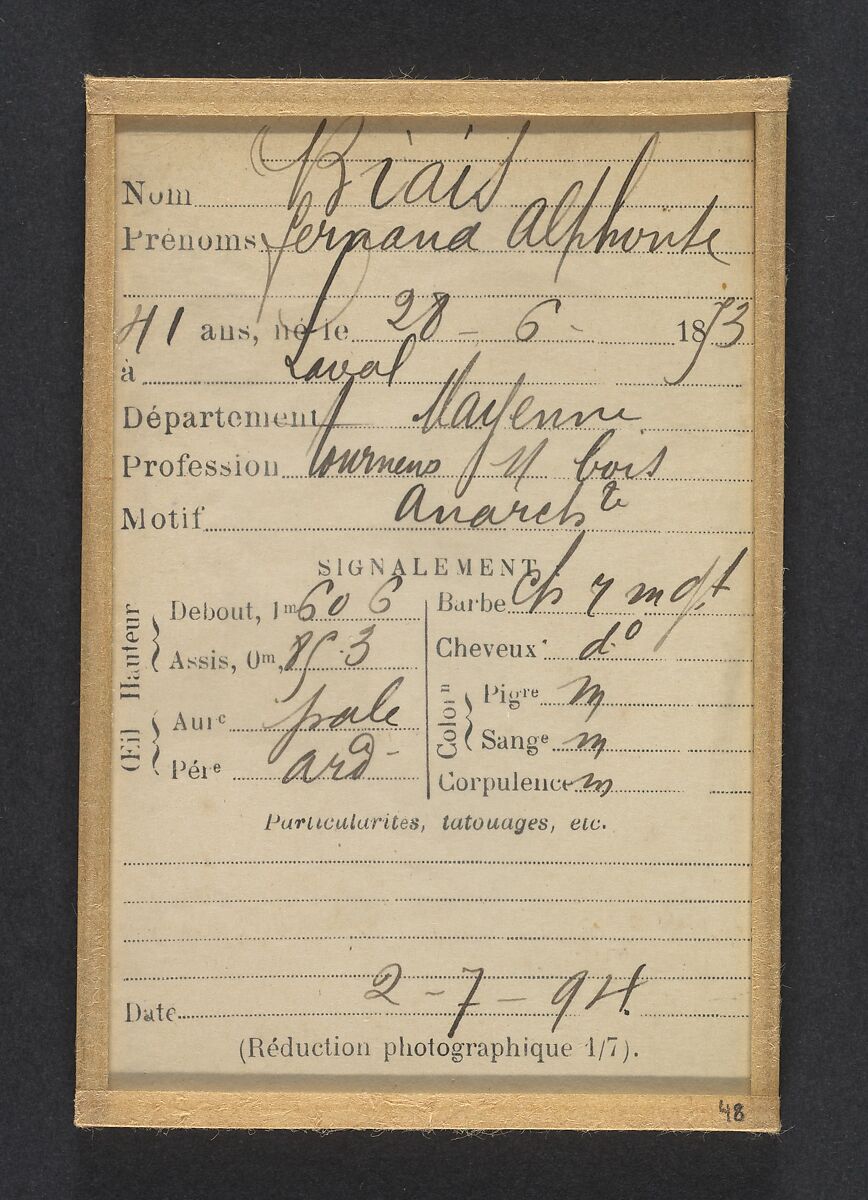 Nom Biais
Prénoms Fernand Alphonse
41 ans, né le 28 - 6 - 1853
à Laval
Département Mayenne
Profession tourneur s/ bois
Motif Anarchte
SIGNALEMENT
Hauteur
Debout, 1m 60 6
Assis, 0m, 85.3
Œil
Aure pale
Pére ard
Barbe ch
Cheveux do
Colorn
Pigre m
Sange m
Corpulence m
Particularités, tatouages, etc.
Date 2 - 7 - 94.
(Réduction photographique 1/7).
48